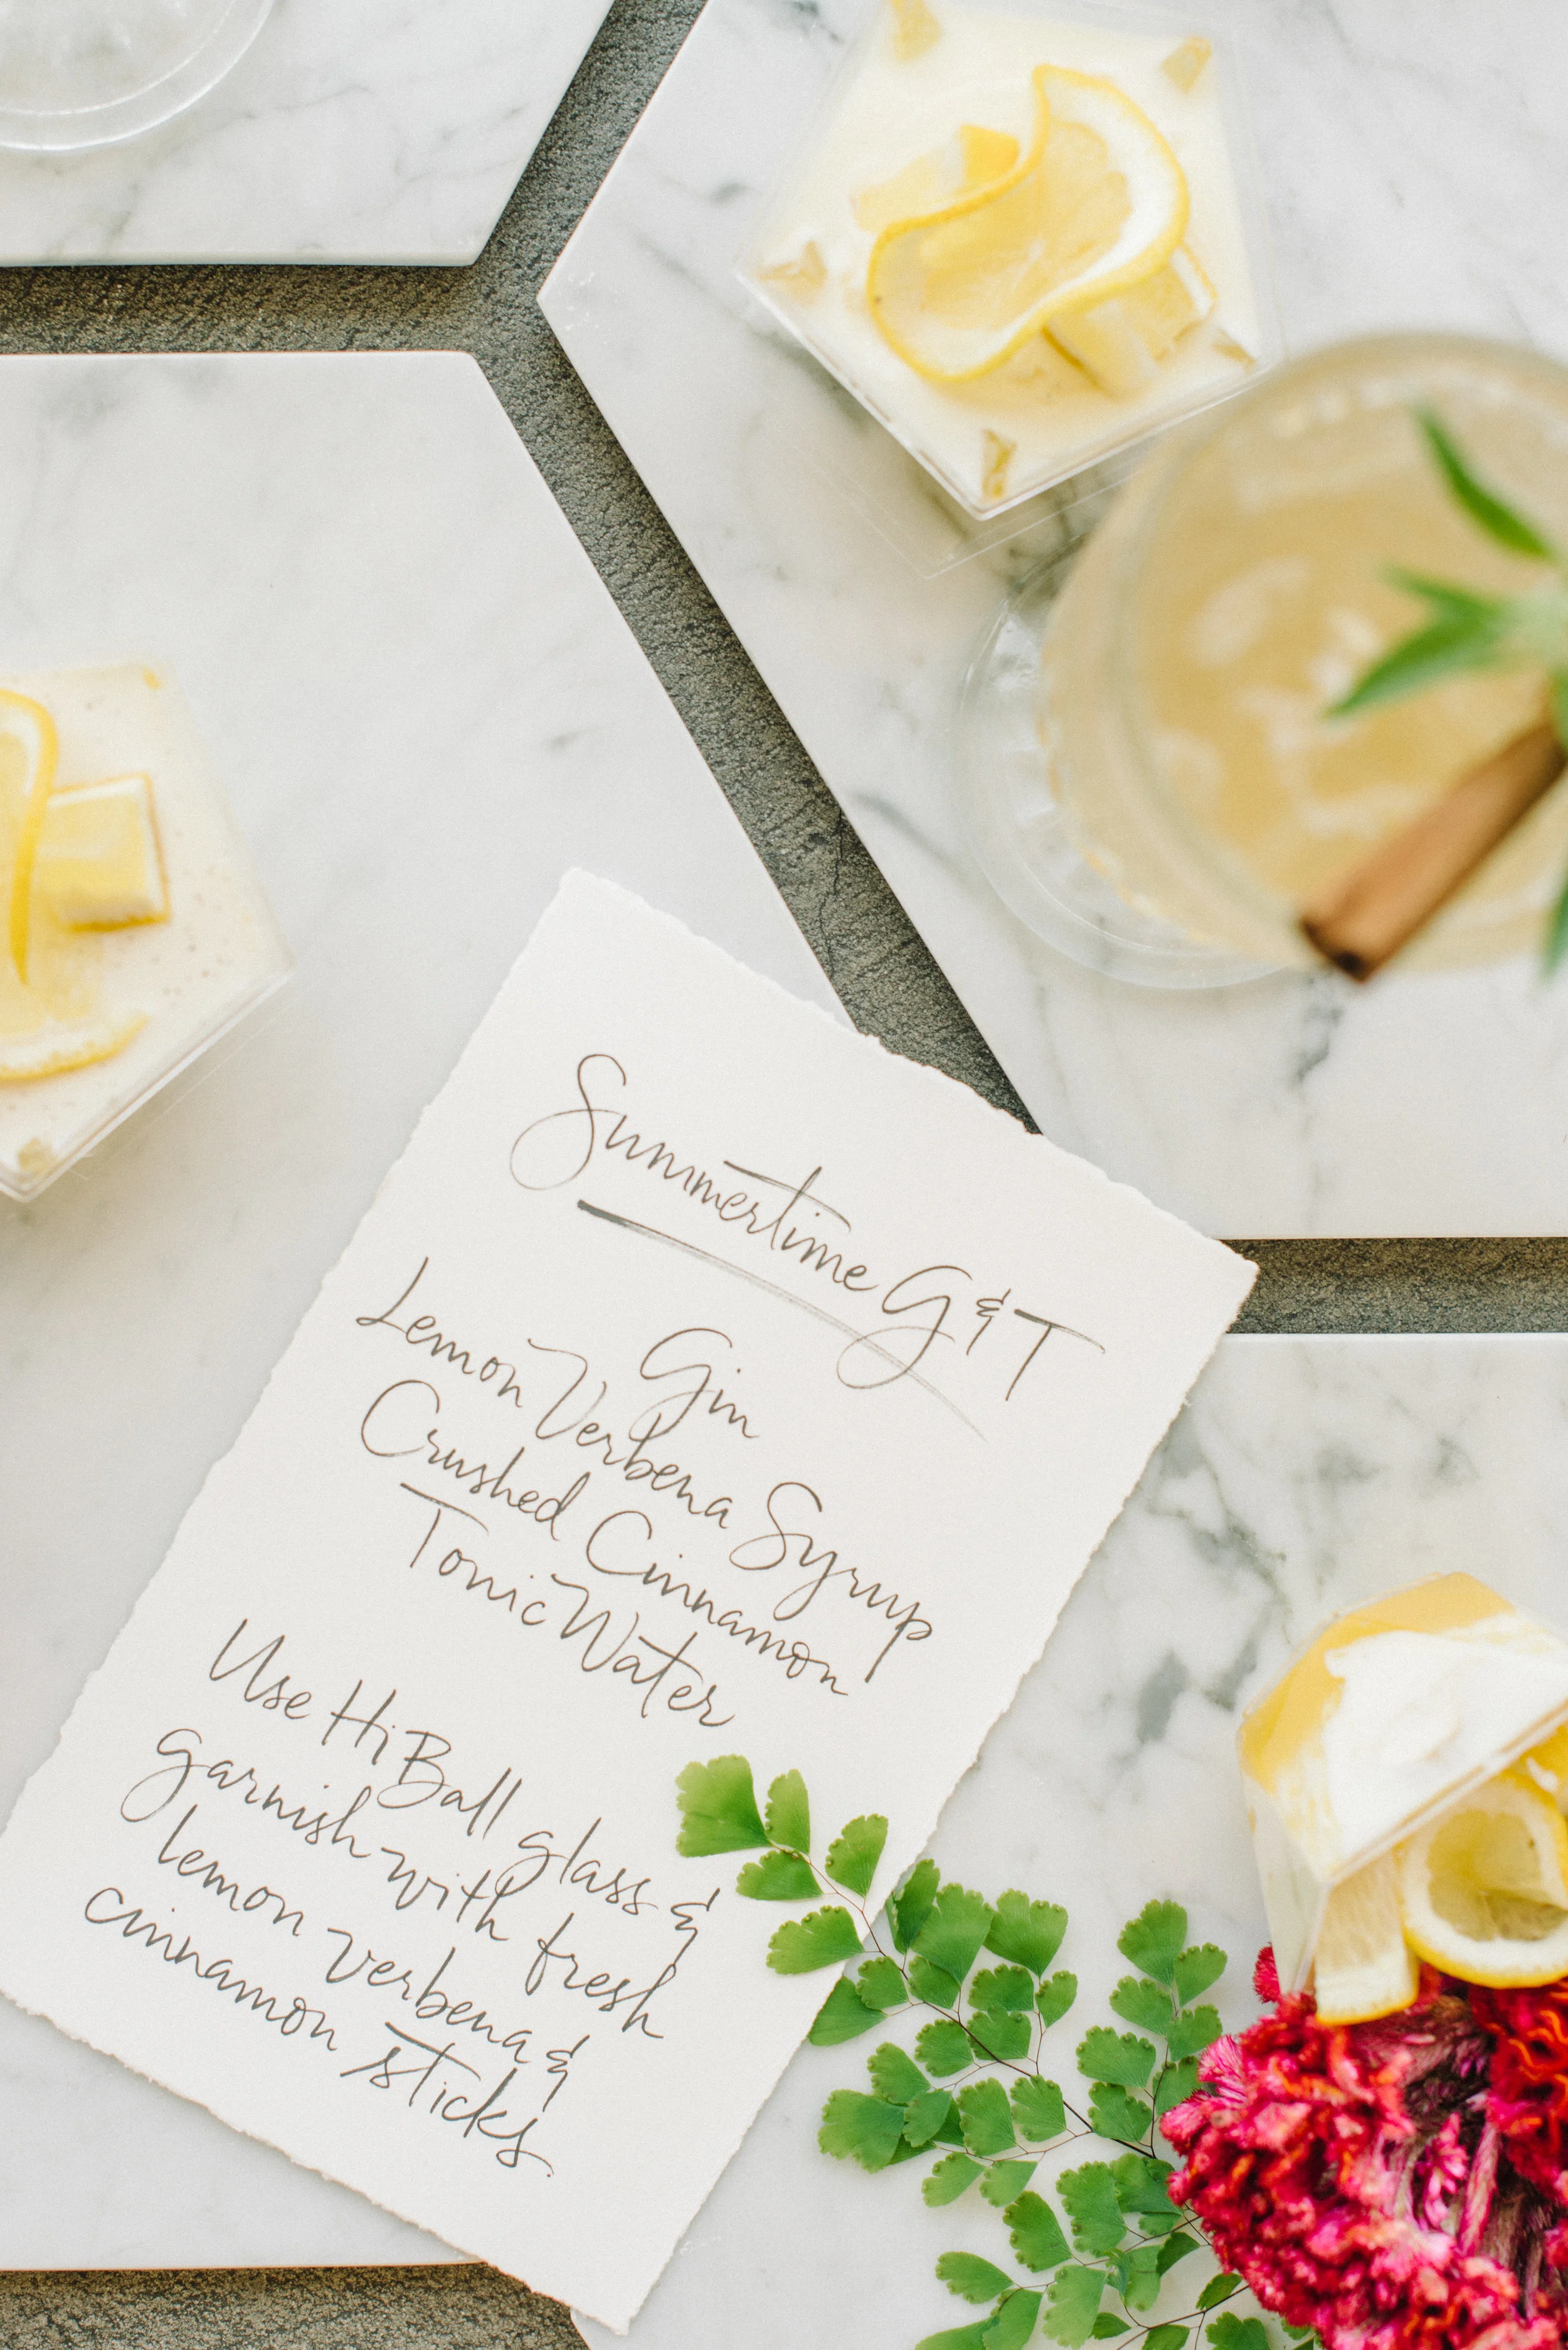 Summertime G & T
Gin
Lemon Verbena Syrup
Crushed Cinnamon
Tonic Water
Use HiBall glass &
garnish with fresh
lemon verbena &
cinnamon sticks.